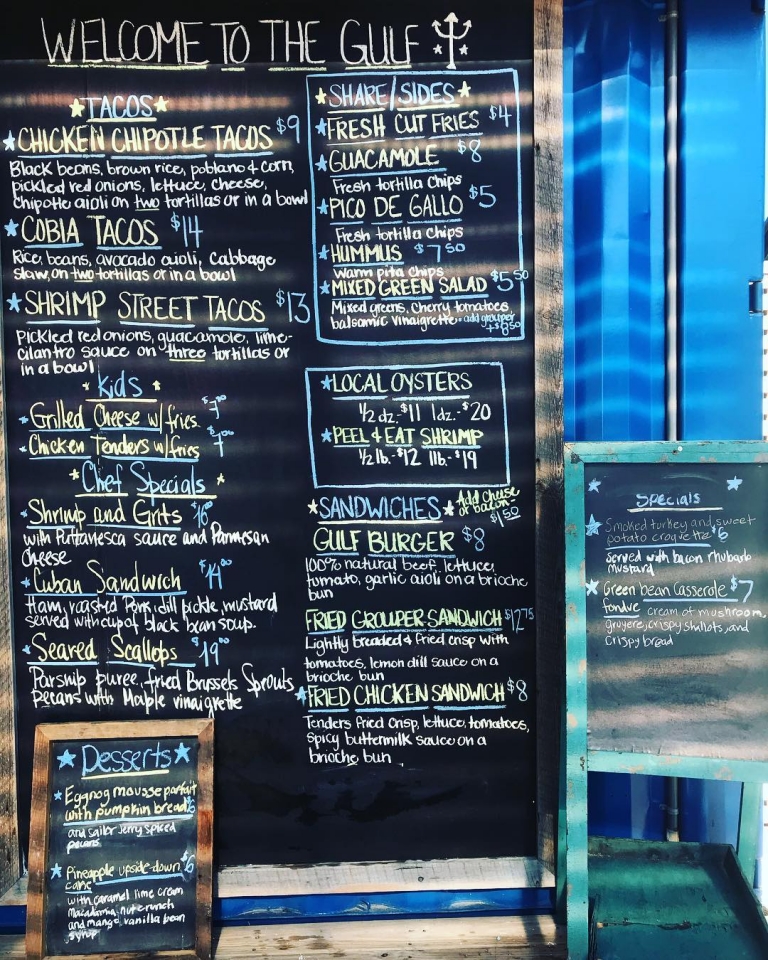 WELCOME TO THE GULF
TACOS
CHICKEN CHIPOTLE TACOS $9
Black beans, brown rice, poblano & corn,
pickled red onions, lettuce, cheese,
chipotle aioli on two tortillas or in a bowl
COBIA TACOS $14
Rice, beans, avocado aioli, Cabbage
slaw, on two tortillas or in a bowl
SHRIMP STREET TACOS $13
Pickled red onions, guacamole, lime-
cilantro sauce on three tortillas or
in a bowl
Kids
Grilled Cheese w/ fries
Chicken Tenders w/ fries
Chef Specials
Shrimp and Grits
with Puttanesca sauce and Parmesan
Cheese
Cuban Sandwich
Ham, roasted Pork, dill pickle, mustard
served with cup of black bean soup.
Seared Scallops $19
Parsnip puree, fried Brussels Sprouts,
pecans with Maple vinaigrette
SHARE/SIDES
FRESH CUT FRIES $4
GUACAMOLE $8
Fresh tortilla chips
PICO DE GALLO $5
Fresh tortilla chips
HUMMUS $7 50
Warm pita chips
MIXED GREEN SALAD $5 50
Mixed greens, cherry tomatoes,
balsamic vinaigrette - add grouper
LOCAL OYSTERS
1/2 dz.-$11 1dz.-$20
PEEL & EAT SHRIMP
1/2 lb.-$12 1lb.-$19
SANDWICHES
Add cheese
or bacon-
$1.50
GULF BURGER $8
100% natural beef, lettuce,
tomato, garlic aioli on a brioche
bun
FRIED GROUPER SANDWICH $12 75
Lightly breaded & fried crisp with
tomatoes, lemon dill sauce on a
brioche bun
FRIED CHICKEN SANDWICH $8
Tenders fried crisp, lettuce, tomatoes,
spicy buttermilk sauce on a
brioche bun
Specials
Smoked turkey and sweet
potato croquette $6
served with bacon rhubarb
mustard
Green bean Casserole $7
fondue cream of mushroom,
gruyere, crispy shallots, and
crispy bread
Desserts
Eggnog mousse parfait
with pumpkin bread
and sailor Jerry spiced
pecans
Pineapple upside-down $6
cake
with caramel lime cream
Macadamia nut crunch
and mango vanilla bean
syrup